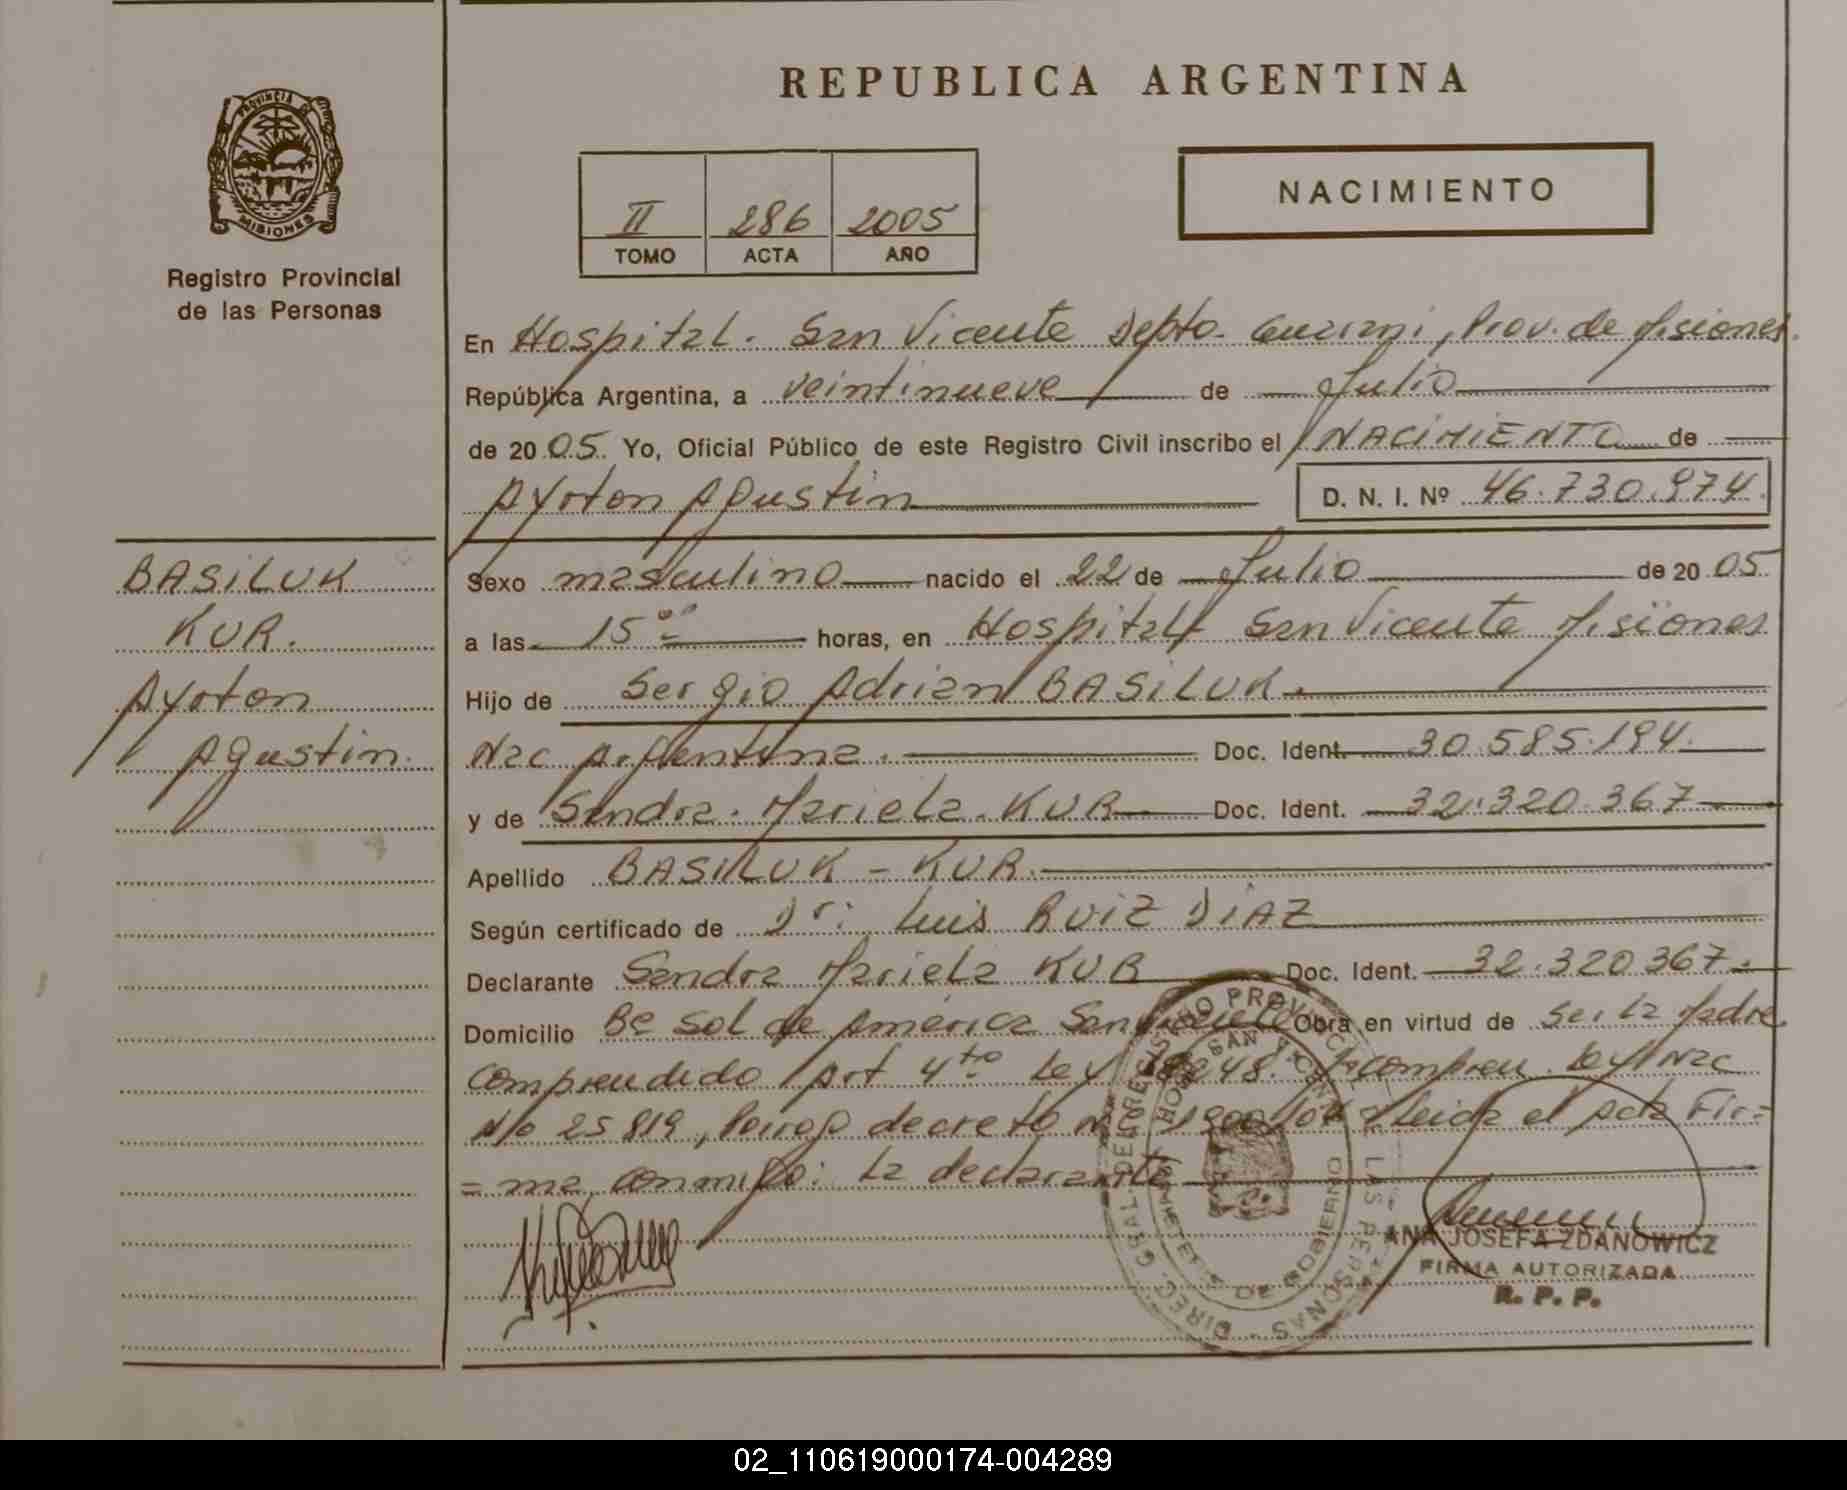 REPUBLICA ARGENTINA
PROVINCIA DE
MISIONES
Registro Provincial
de las Personas
II 286 2005
TOMO ACTA AÑO
NACIMIENTO
En Hospital. San Vicente Depto. Guarani, Prov. de Misiones.
República Argentina, a veintinueve de Julio
de 2005. Yo, Oficial Público de este Registro Civil inscribo el NACIMIENTO de
Ayrton Agustin
D. N. I. Nº 46.730.974.
BASILUK
KUR.
Ayrton
Agustin.
Sexo masculino nacido el 22 de Julio de 2005
a las 15 horas, en Hospital San Vicente Misiones
Hijo de Sergio Adrian BASILUK.
Nac Argentina. Doc. Ident. 30.585.194.
y de Sandra. Mariela. KUR Doc. Ident. 32.320.367
Apellido BASILUK - KUR.
Según certificado de Dr: Luis RUIZ DIAZ
Declarante Sandra Mariela KUR Doc. Ident. 32.320.367.
Domicilio Bº Sol de América San Vicente Obra en virtud de ser la Madre
Comprendido Art 4to Ley 18248. compren. Ley Nac
Nº 25819, decreto Nº leida el Acta Fir=
=ma conmigo: la declarante
DIREC. GRAL. DEL REGISTRO PROVINCIAL DE LAS PERSONAS
HOSP. SAN VICENTE
DE GOBIERNO
ANA JOSEFA ZDANOWICZ
FIRMA AUTORIZADA
R. P. P.
02_110619000174-004289